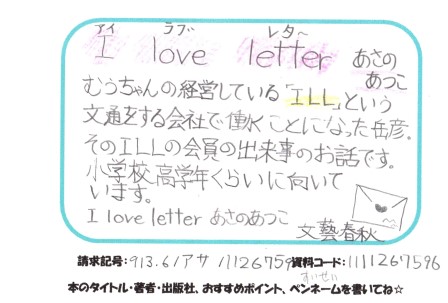 アイ ラブ レター
I love letter あさの
あつこ
むうちゃんの経営している「ILL」という
文通をする会社で働くことになった岳彦。
そのILLの会員の出来事のお話です。
小学校高学年くらいに向いて
います。
I love letter あさのあつこ
文藝春秋
請求記号:913.6/アサ/1126759 資料コード:1111267596
すいせい
本のタイトル・著者・出版社、おすすめポイント、ペンネームを書いてね☆